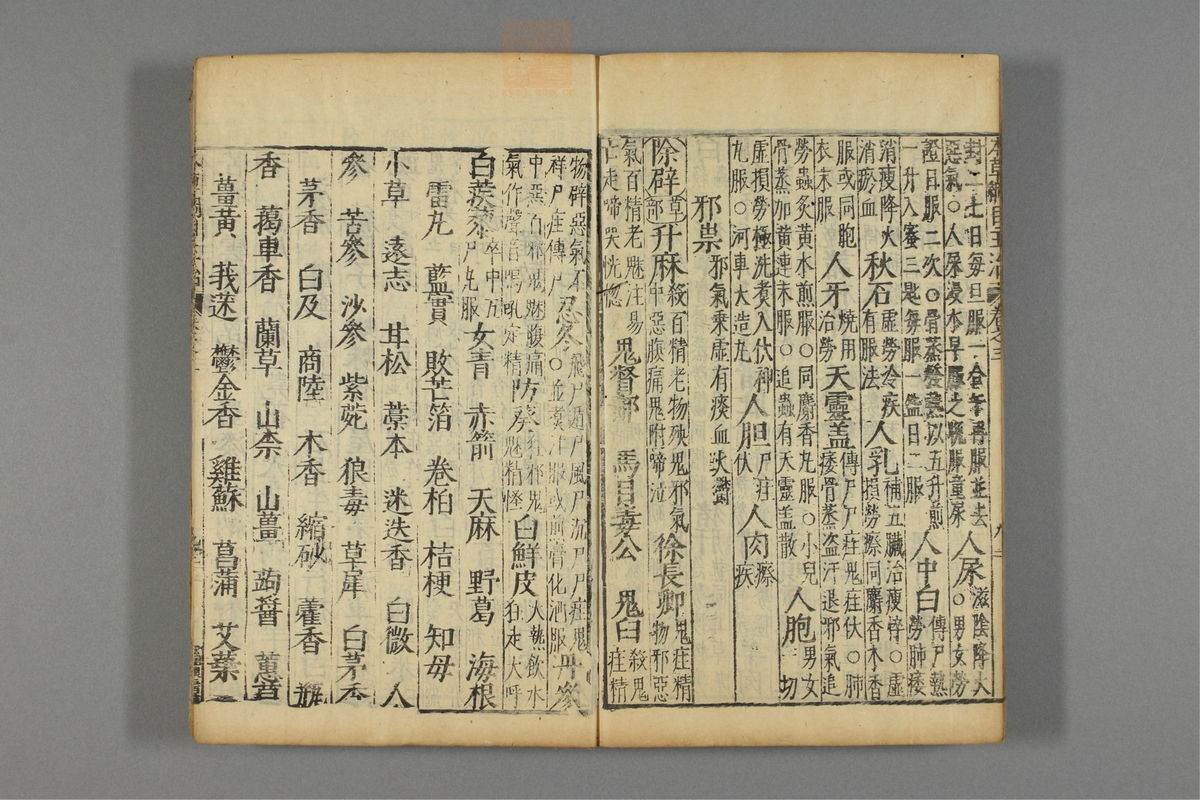 封二七日每旦服一合午再服並去
惡氣○人尿浸水早服之晚服童尿
人尿滋陰降火○男女勞
證日服二次○骨蒸發熱以五升煎
一升入蜜三匙每服一盌日二服
人中白傳尸熱勞肺痿
消瘦降火消瘀血
秋石虛勞冷疾有服法
人乳補五臟治瘦悴○虛損勞瘵同麝香木香
服或同胞衣末服
人牙燒用治勞
天靈蓋傳尸尸疰鬼疰伏○肺痿骨蒸盗汗退邪氣追
勞蟲炙黄水煎服○同麝香丸服○小兒
骨蒸加黄連末服○追蟲有天靈盖散
人胞男女一切
虛損勞極洗煮入伏神
丸服○河車大造丸
人胆尸疰伏
人肉瘵疾
邪祟邪氣乗虛有痰血火鬱
除辟草部升麻殺百精老物殃鬼邪氣中惡腹痛鬼附啼泣
徐長卿鬼疰精物邪惡
氣百精老魅注易
亡走啼哭恍惚
鬼督郵 馬目毒公 鬼臼殺鬼疰精
物辟惡氣不祥尸疰傳尸
忍冬飛尸遁尸風尸沉尸尸疰鬼○並煮汁服或煎膏化酒服
丹參
中惡百邪鬼魅腹痛
氣作聲音鳴吼定精
防葵狂邪鬼魅精怪
白鮮皮大熱飲水狂走大呼
白蒺藜卒中五尸丸服
女青 赤箭 天麻 野葛 海根
雷丸 藍實 敗芒箔 卷柏 桔梗 知母
小草 遠志 甘松 藁本 迷迭香 白微 人
參 苦參 沙參 紫菀 狼毒 草犀 白茅香
茅香 白及 商陸 木香 縮砂 藿香 瓶
香 藒車香 蘭草 山柰 山薑 蒟醬 蕙草
薑黃 莪蒁 鬱金香 雞蘇 菖蒲 艾葉